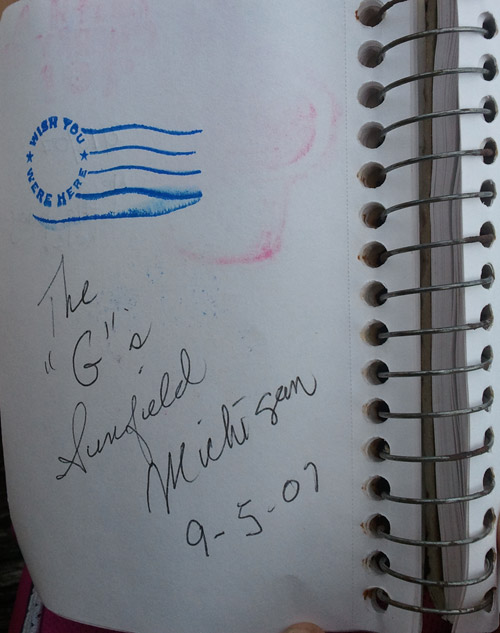 WISH YOU
WERE HERE
The
"G"s
Sunfield
Michigan
9-5-07